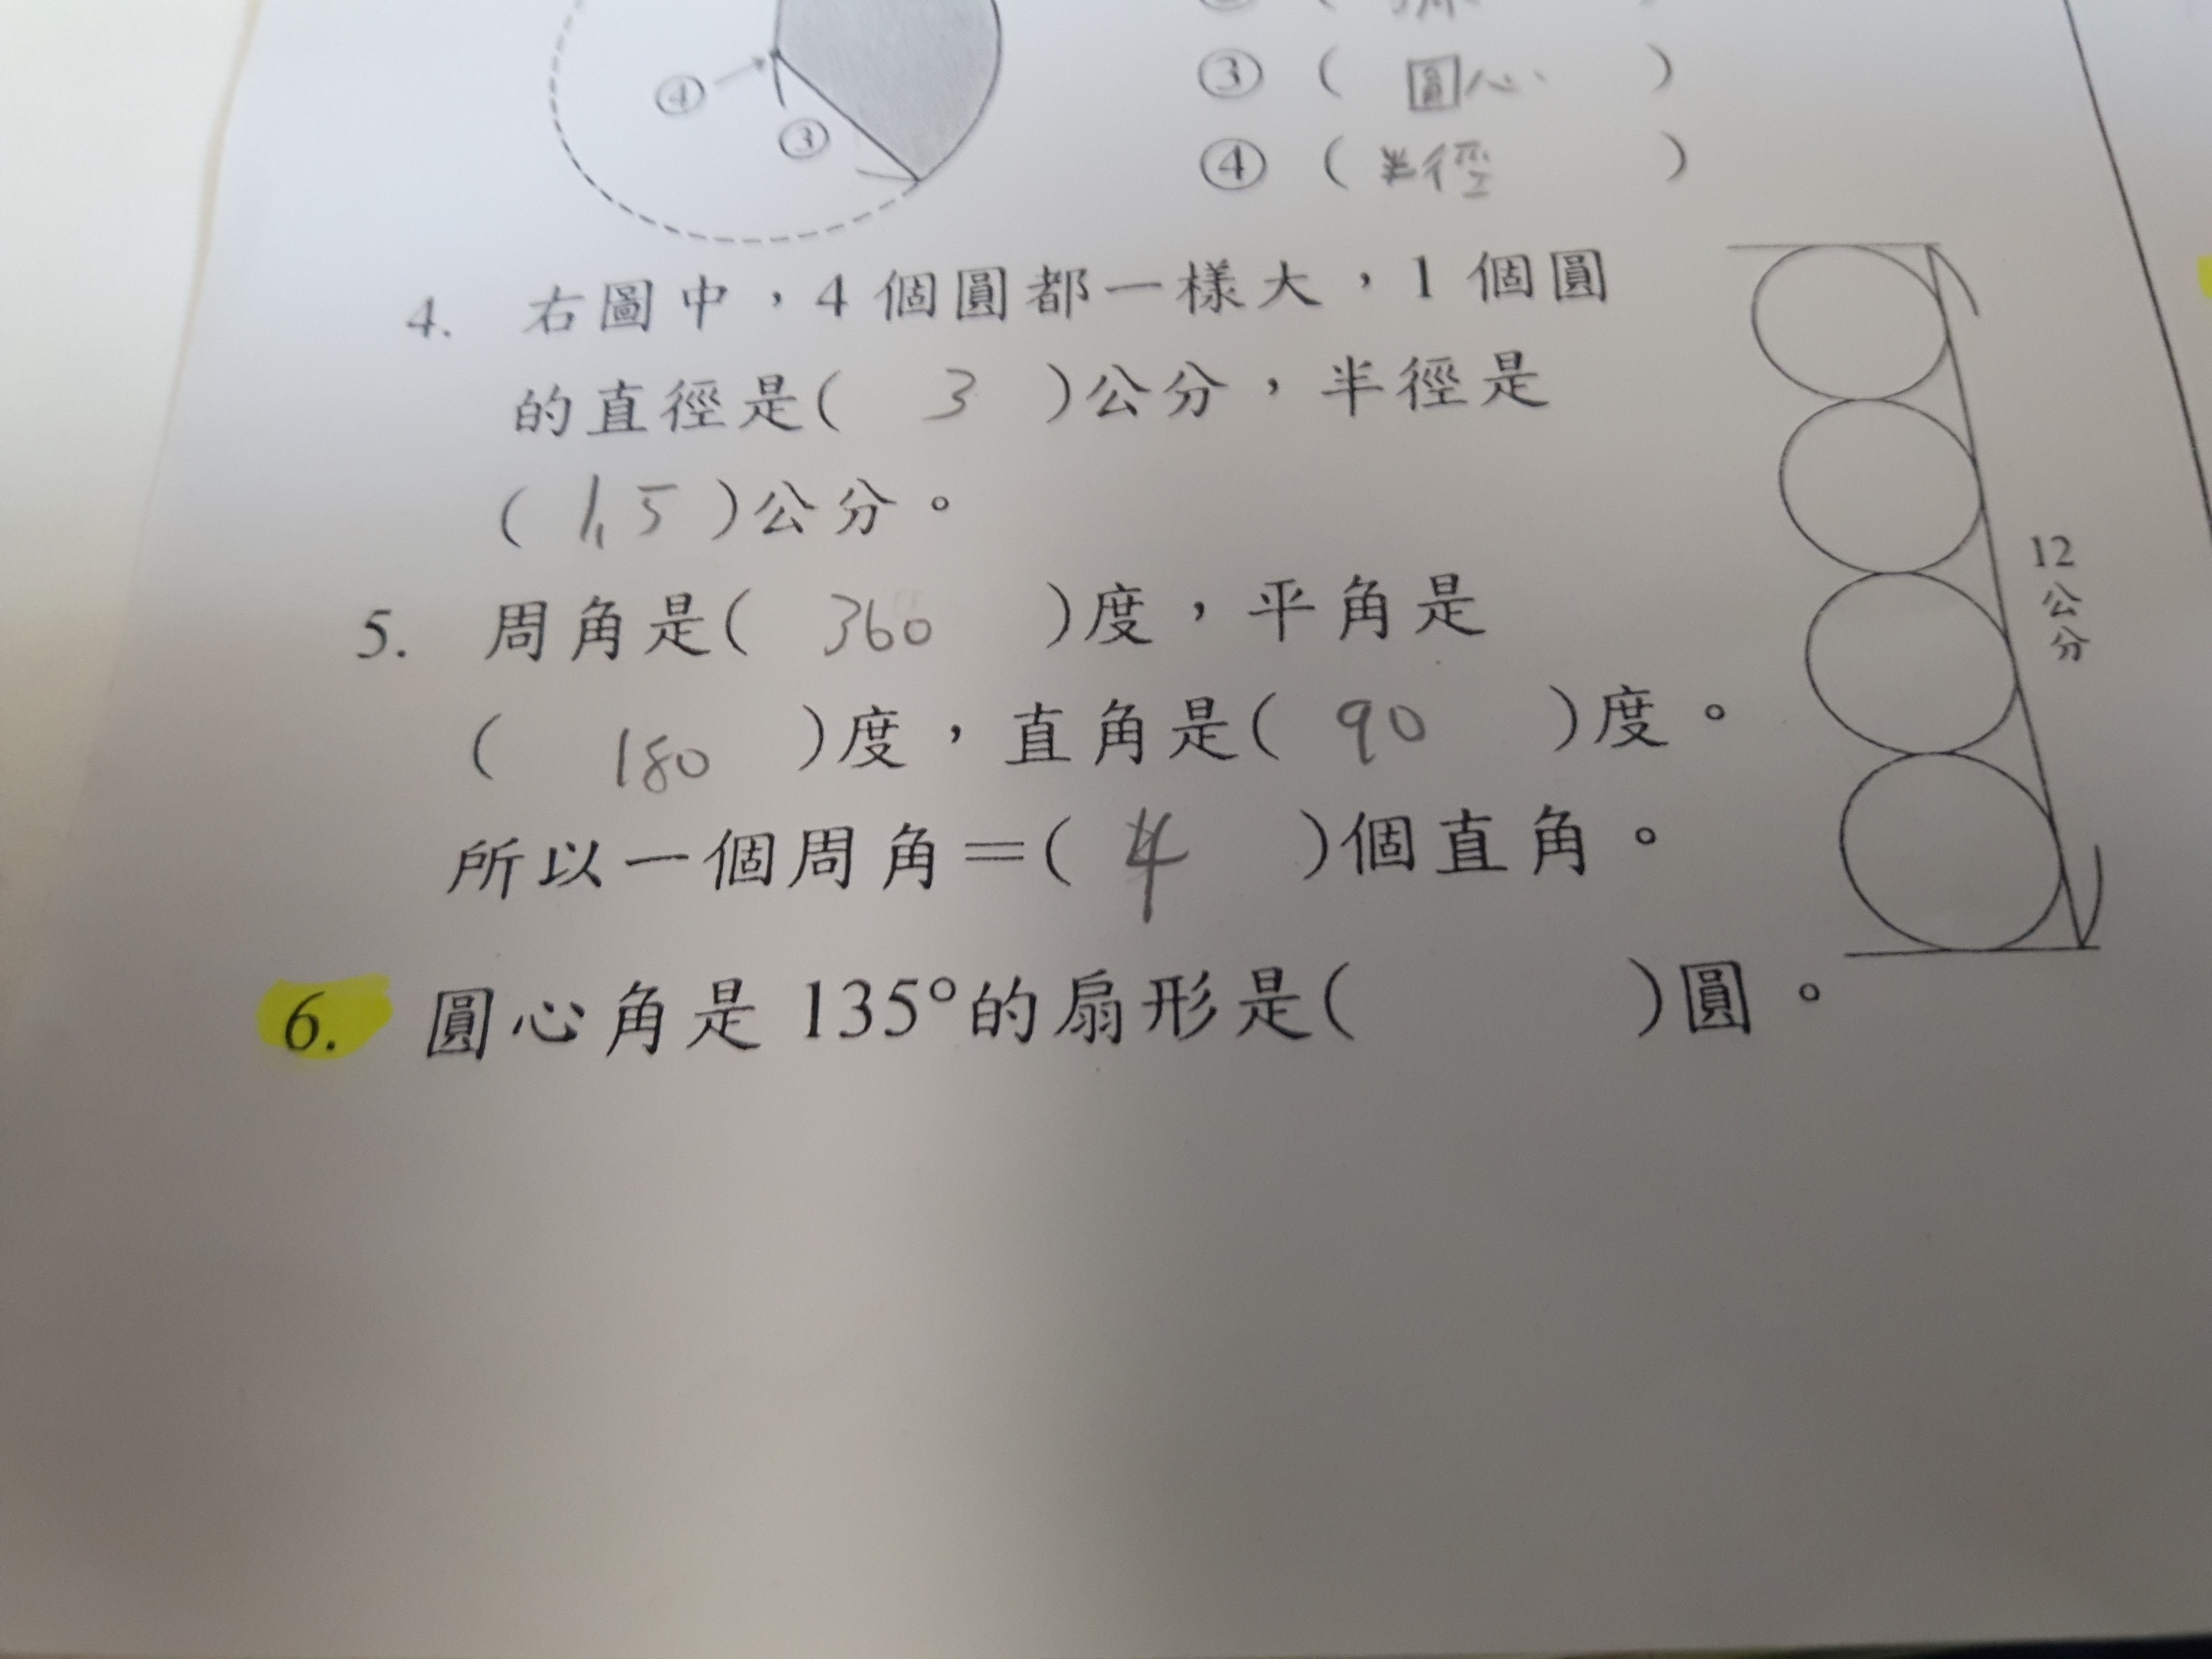 ④
③
③ ( 圓心 )
④ ( 半徑 )
4. 右圖中，4個圓都一樣大，1個圓
的直徑是( 3 )公分，半徑是
( 1.5 )公分。
12公分
5. 周角是( 360 )度，平角是
( 180 )度，直角是( 90 )度。
所以一個周角=( 4 )個直角。
6. 圓心角是135°的扇形是( )圓。